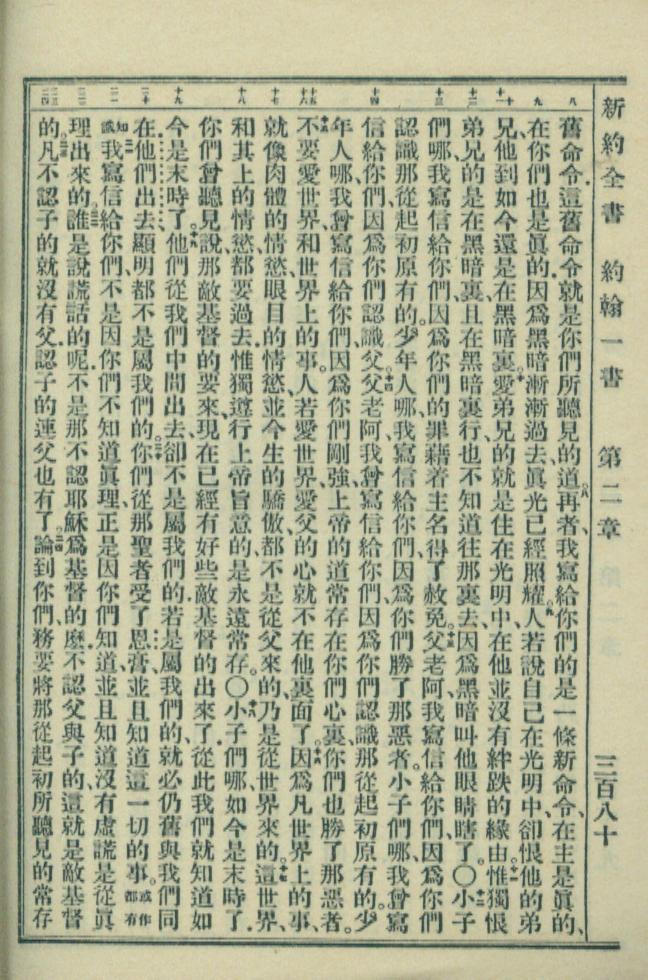 新約全書 約翰一書 第二章 三百八十
舊命令、這舊命令就是你們所聽見的道。再者、我寫給你們的是一條新命令、在主是眞的、
在你們也是眞的、因爲黑暗漸漸過去、眞光已經照耀。人若說自己在光明中、卻恨他的弟
兄、他到如今還是在黑暗裏。愛弟兄的就是住在光明中、在他並沒有絆跌的緣由。惟獨恨
弟兄的是在黑暗裏、且在黑暗裏行、也不知道往那裏去、因爲黑暗叫他眼睛瞎了。〇小子
們哪、我寫信給你們、因爲你們的罪藉着主名得了赦免。父老阿、我寫信給你們、因爲你們
認識那從起初原有的。少年人哪、我寫信給你們、因爲你們勝了那惡者。小子們哪、我曾寫
信給你們、因爲你們認識父。父老阿、我曾寫信給你們、因爲你們認識那從起初原有的。少
年人哪、我曾寫信給你們、因爲你們剛強、上帝的道常存在你們心裏、你們也勝了那惡者。
不要愛世界和世界上的事。人若愛世界、愛父的心就不在他裏面了。因爲凡世界上的事、
就像肉體的情慾、眼目的情慾、並今生的驕傲、都不是從父來的、乃是從世界來的。這世界、
和其上的情慾、都要過去、惟獨遵行上帝旨意的、是永遠常存。〇小子們哪、如今是末時了、
你們曾聽見說、那敵基督的要來、現在已經有好些敵基督的出來了、從此我們就知道如
今是末時了。他們從我們中間出去、卻不是屬我們的、若是屬我們的、就必仍舊與我們同
在、他們出去、顯明都不是屬我們的。你們從那聖者受了恩膏、並且知道這一切的事。或作都有
知識我寫信給你們、不是因你們不知道眞理、正是因你們知道、並且知道沒有虛謊是從眞
理出來的。誰是說謊話的呢、不是那不認耶穌爲基督的麼、不認父與子的、這就是敵基督
的。凡不認子的就沒有父、認子的連父也有了。論到你們、務要將那從起初所聽見的常存